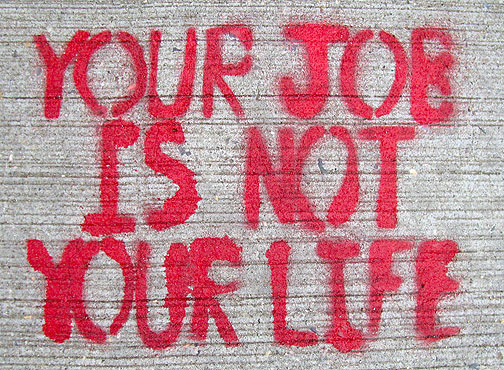 YOUR JOB
IS NOT
YOUR LIFE